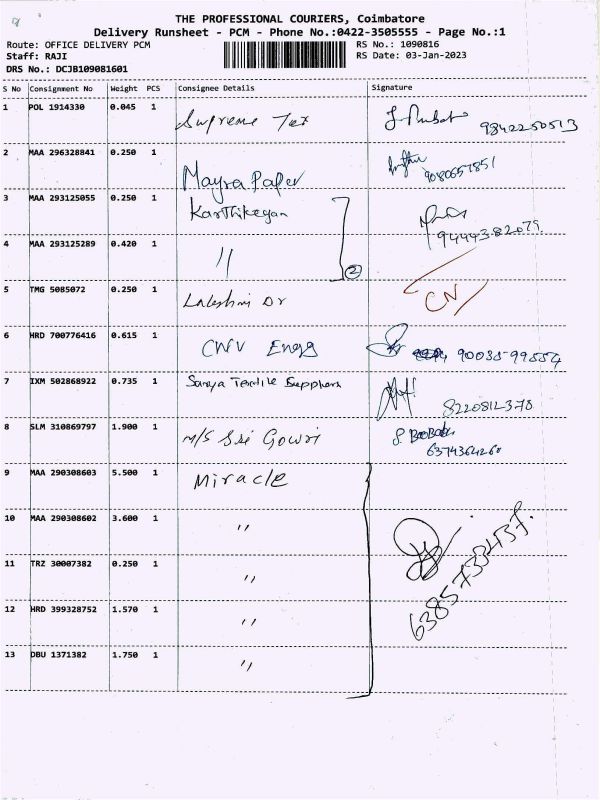 THE PROFESSIONAL COURIERS, Coimbatore
Delivery Runsheet - PCM - Phone No.:0422-3505555 - Page No.:1
Route: OFFICE DELIVERY PCM RS No.: 1090816
Staff: RAJI RS Date: 03-Jan-2023
DRS No.: DCJB109081601
S No Consignment No Weight PCS Consignee Details Signature
1 POL 1914330 0.045 1 Supreme Tex 9842250513
2 MAA 296328841 0.250 1 Mayra Paper 9080657851
3 MAA 293125055 0.250 1 Karthikeyan 9444382079
4 MAA 293125289 0.420 1 "
2
5 TMG 5085072 0.250 1 Lakshmi Dr CN
6 HRD 700776416 0.615 1 CWV Energ 90035-99554
7 IXM 502868922 0.735 1 Textile Suppliers 8220812378
8 SLM 310869797 1.900 1 M/S Sri Gowri
6374364260
9 MAA 290308603 5.500 1 Miracle
10 MAA 290308602 3.600 1 "
11 TRZ 30007382 0.250 1 "
12 HRD 399328752 1.570 1 "
13 DBU 1371382 1.750 1 "